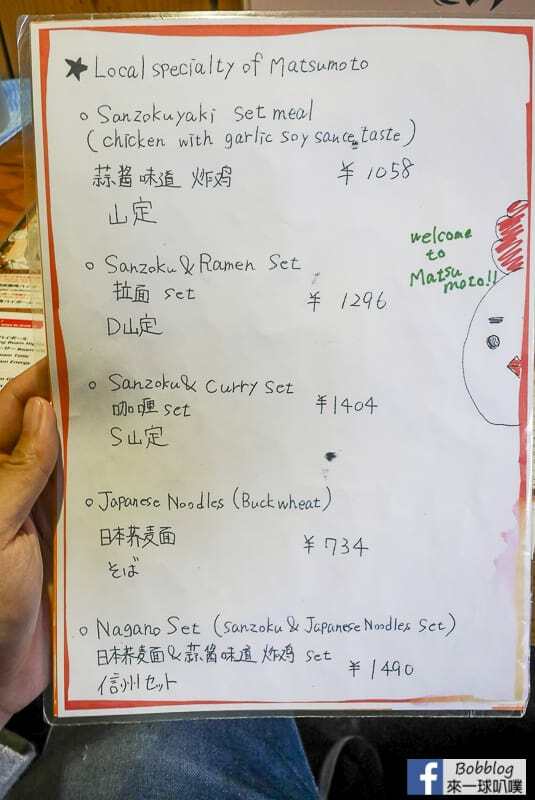 ★ Local specialty of Matsumoto
○ Sanzokuyaki set meal
(chicken with garlic soy sauce taste)
蒜酱味道 炸鸡 ¥1058
山定
○ Sanzoku & Ramen Set
拉面 set ¥1296
D山定
welcome
to
Matsu
moto!!
○ Sanzoku & Curry set
咖喱 set ¥1404
S山定
○ Japanese Noodles (Buckwheat)
日本荞麦面 ¥734
そば
○ Nagano Set (Sanzoku & Japanese Noodles Set)
日本荞麦面&蒜酱味道 炸鸡 set
¥1490
信州セット
Bobblog
來一球叭噗